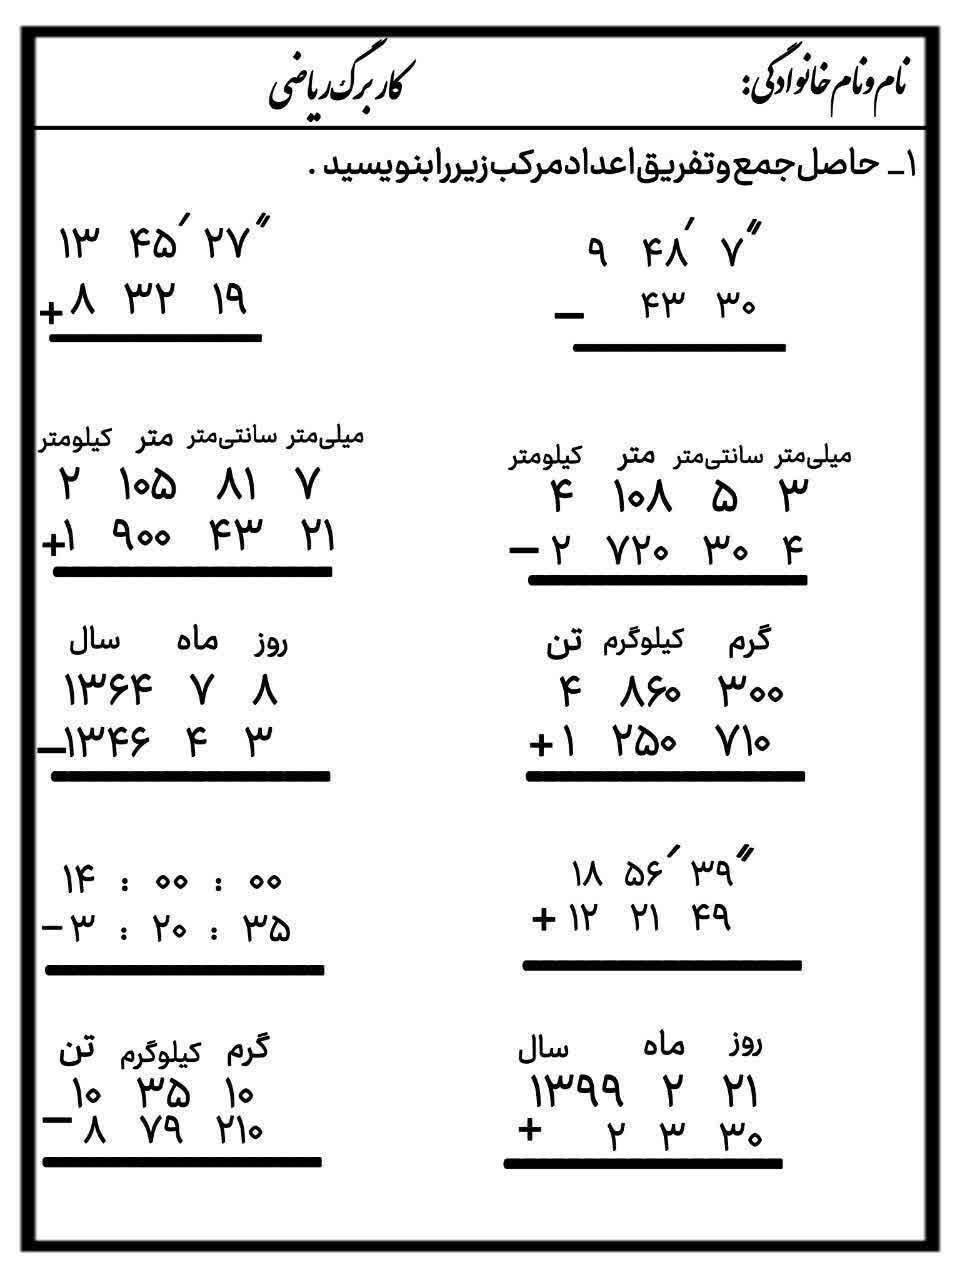 نام و نام خانوادگی: کاربرگ ریاضی
۱_ حاصل جمع و تفریق اعداد مرکب زیر را بنویسید .
۹ ۴۸′ ۷″
− ۴۳ ۳۰
۱۳ ۴۵′ ۲۷″
+ ۸ ۳۲ ۱۹
کیلومتر متر سانتی‌متر میلی‌متر
۴ ۱۰۸ ۵ ۳
− ۲ ۷۲۰ ۳۰ ۴
کیلومتر متر سانتی‌متر میلی‌متر
۲ ۱۰۵ ۸۱ ۷
+ ۱ ۹۰۰ ۴۳ ۲۱
تن کیلوگرم گرم
۴ ۸۶۰ ۳۰۰
+ ۱ ۲۵۰ ۷۱۰
سال ماه روز
۱۳۶۴ ۷ ۸
− ۱۳۴۶ ۴ ۳
۱۸ ۵۶′ ۳۹″
+ ۱۲ ۲۱ ۴۹
۱۴ : ۰۰ : ۰۰
− ۳ : ۲۰ : ۳۵
سال ماه روز
۱۳۹۹ ۲ ۲۱
+ ۲ ۳ ۳۰
تن کیلوگرم گرم
۱۰ ۳۵ ۱۰
− ۸ ۷۹ ۲۱۰